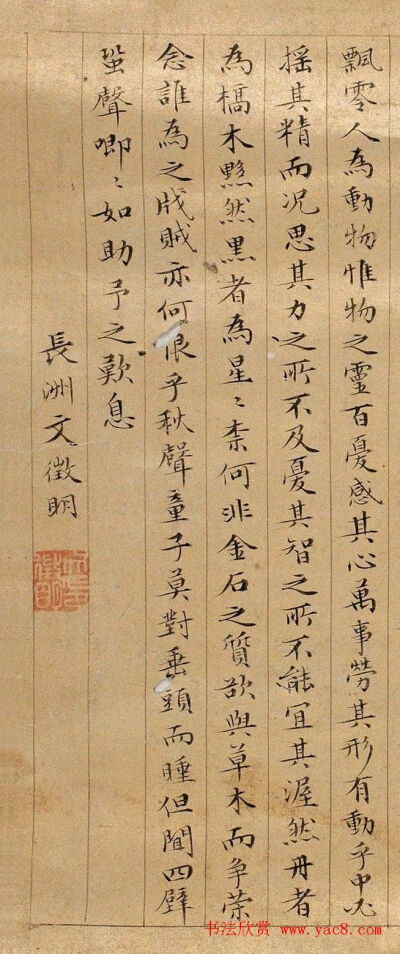 飄零人為動物惟物之靈百憂感其心萬事勞其形有動乎中必
搖其精而況思其力之所不及憂其智之所不能宜其渥然丹者
為槁木黟然黑者為星〻柰何非金石之質欲與草木而爭榮
念誰為之戕賊亦何恨乎秋聲童子莫對垂頭而睡但聞四壁
蛩聲唧〻如助予之歎息
長洲文徵明
书法欣赏 www.yac8.com